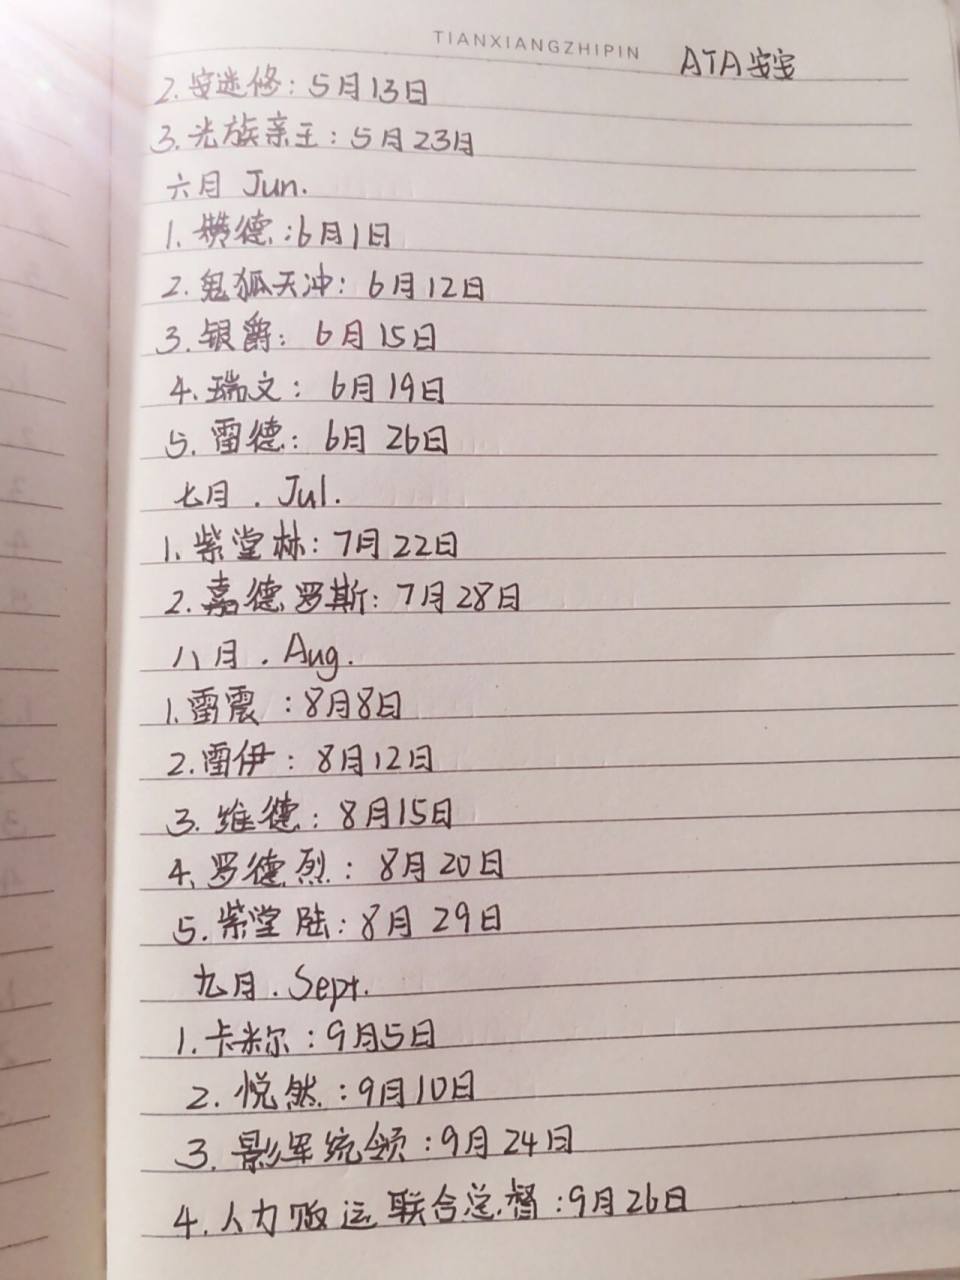 TIANXIANGZHIPIN
ATA安宝
2.安迷修：5月13日
3.光族亲王：5月23日
六月 Jun.
1.赞德：6月1日
2.鬼狐天冲：6月12日
3.银爵：6月15日
4.瑞文：6月19日
5.雷德：6月26日
七月．Jul.
1.紫堂林：7月22日
2.嘉德罗斯：7月28日
八月．Aug.
1.雷震：8月8日
2.雷伊：8月12日
3.维德：8月15日
4.罗德烈：8月20日
5.紫堂陆：8月29日
九月．Sept.
1.卡米尔：9月5日
2.悦然：9月10日
3.影军统领：9月24日
4.人力贩运联合总督：9月26日